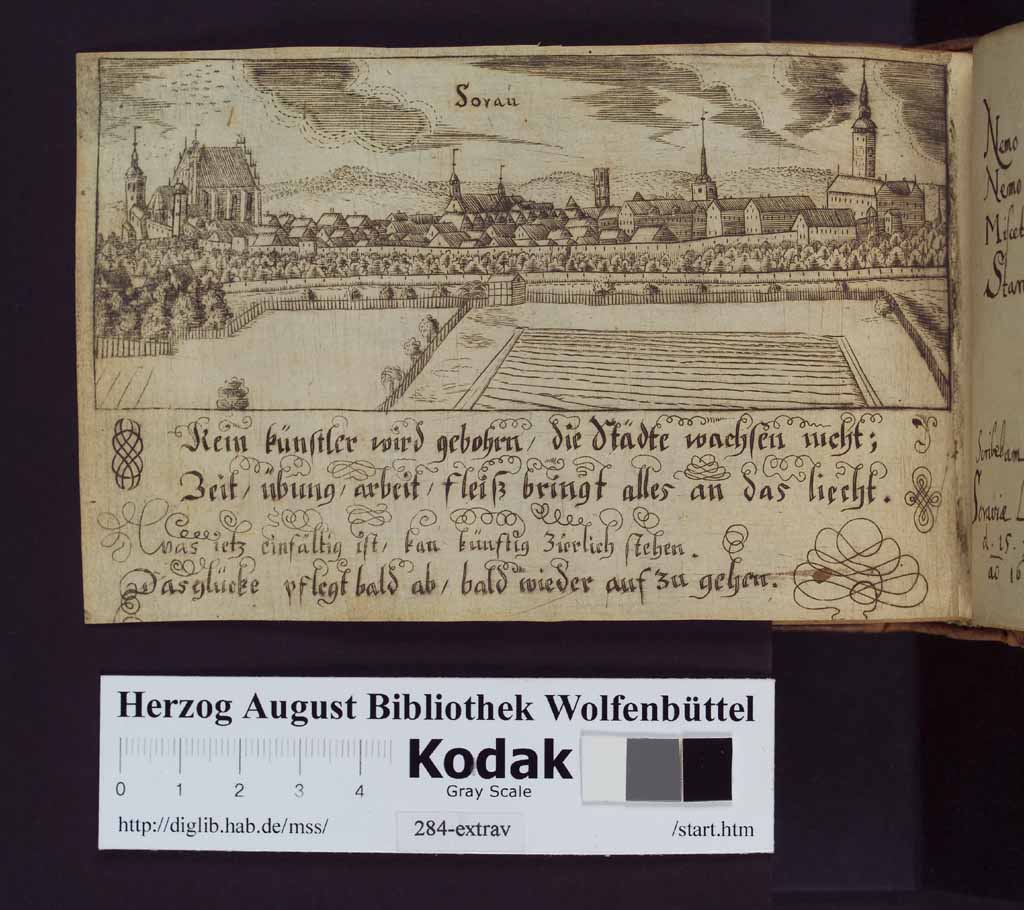 Sorau
Kein künstler wird gebohrn, die Städte wachsen nicht;
Zeit, übung, arbeit, fleiß bringt alles an das liecht.
Was ietz einfältig ist, kan künftig Zierlich stehen.
Das glücke pflegt bald ab, bald wieder auf zu gehen.
Nemo
Nemo
Soraviæ
d. 15.
aō 16
Herzog August Bibliothek Wolfenbüttel
Kodak
Gray Scale
0 1 2 3 4
http://diglib.hab.de/mss/
284-extrav
/start.htm